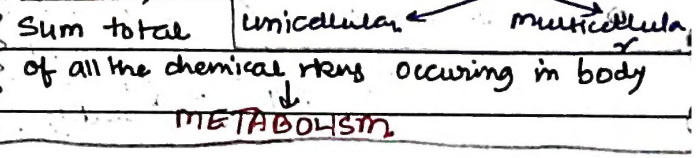 Sum total unicellular multicellular
of all the chemical rxns occuring in body
METABOLISM